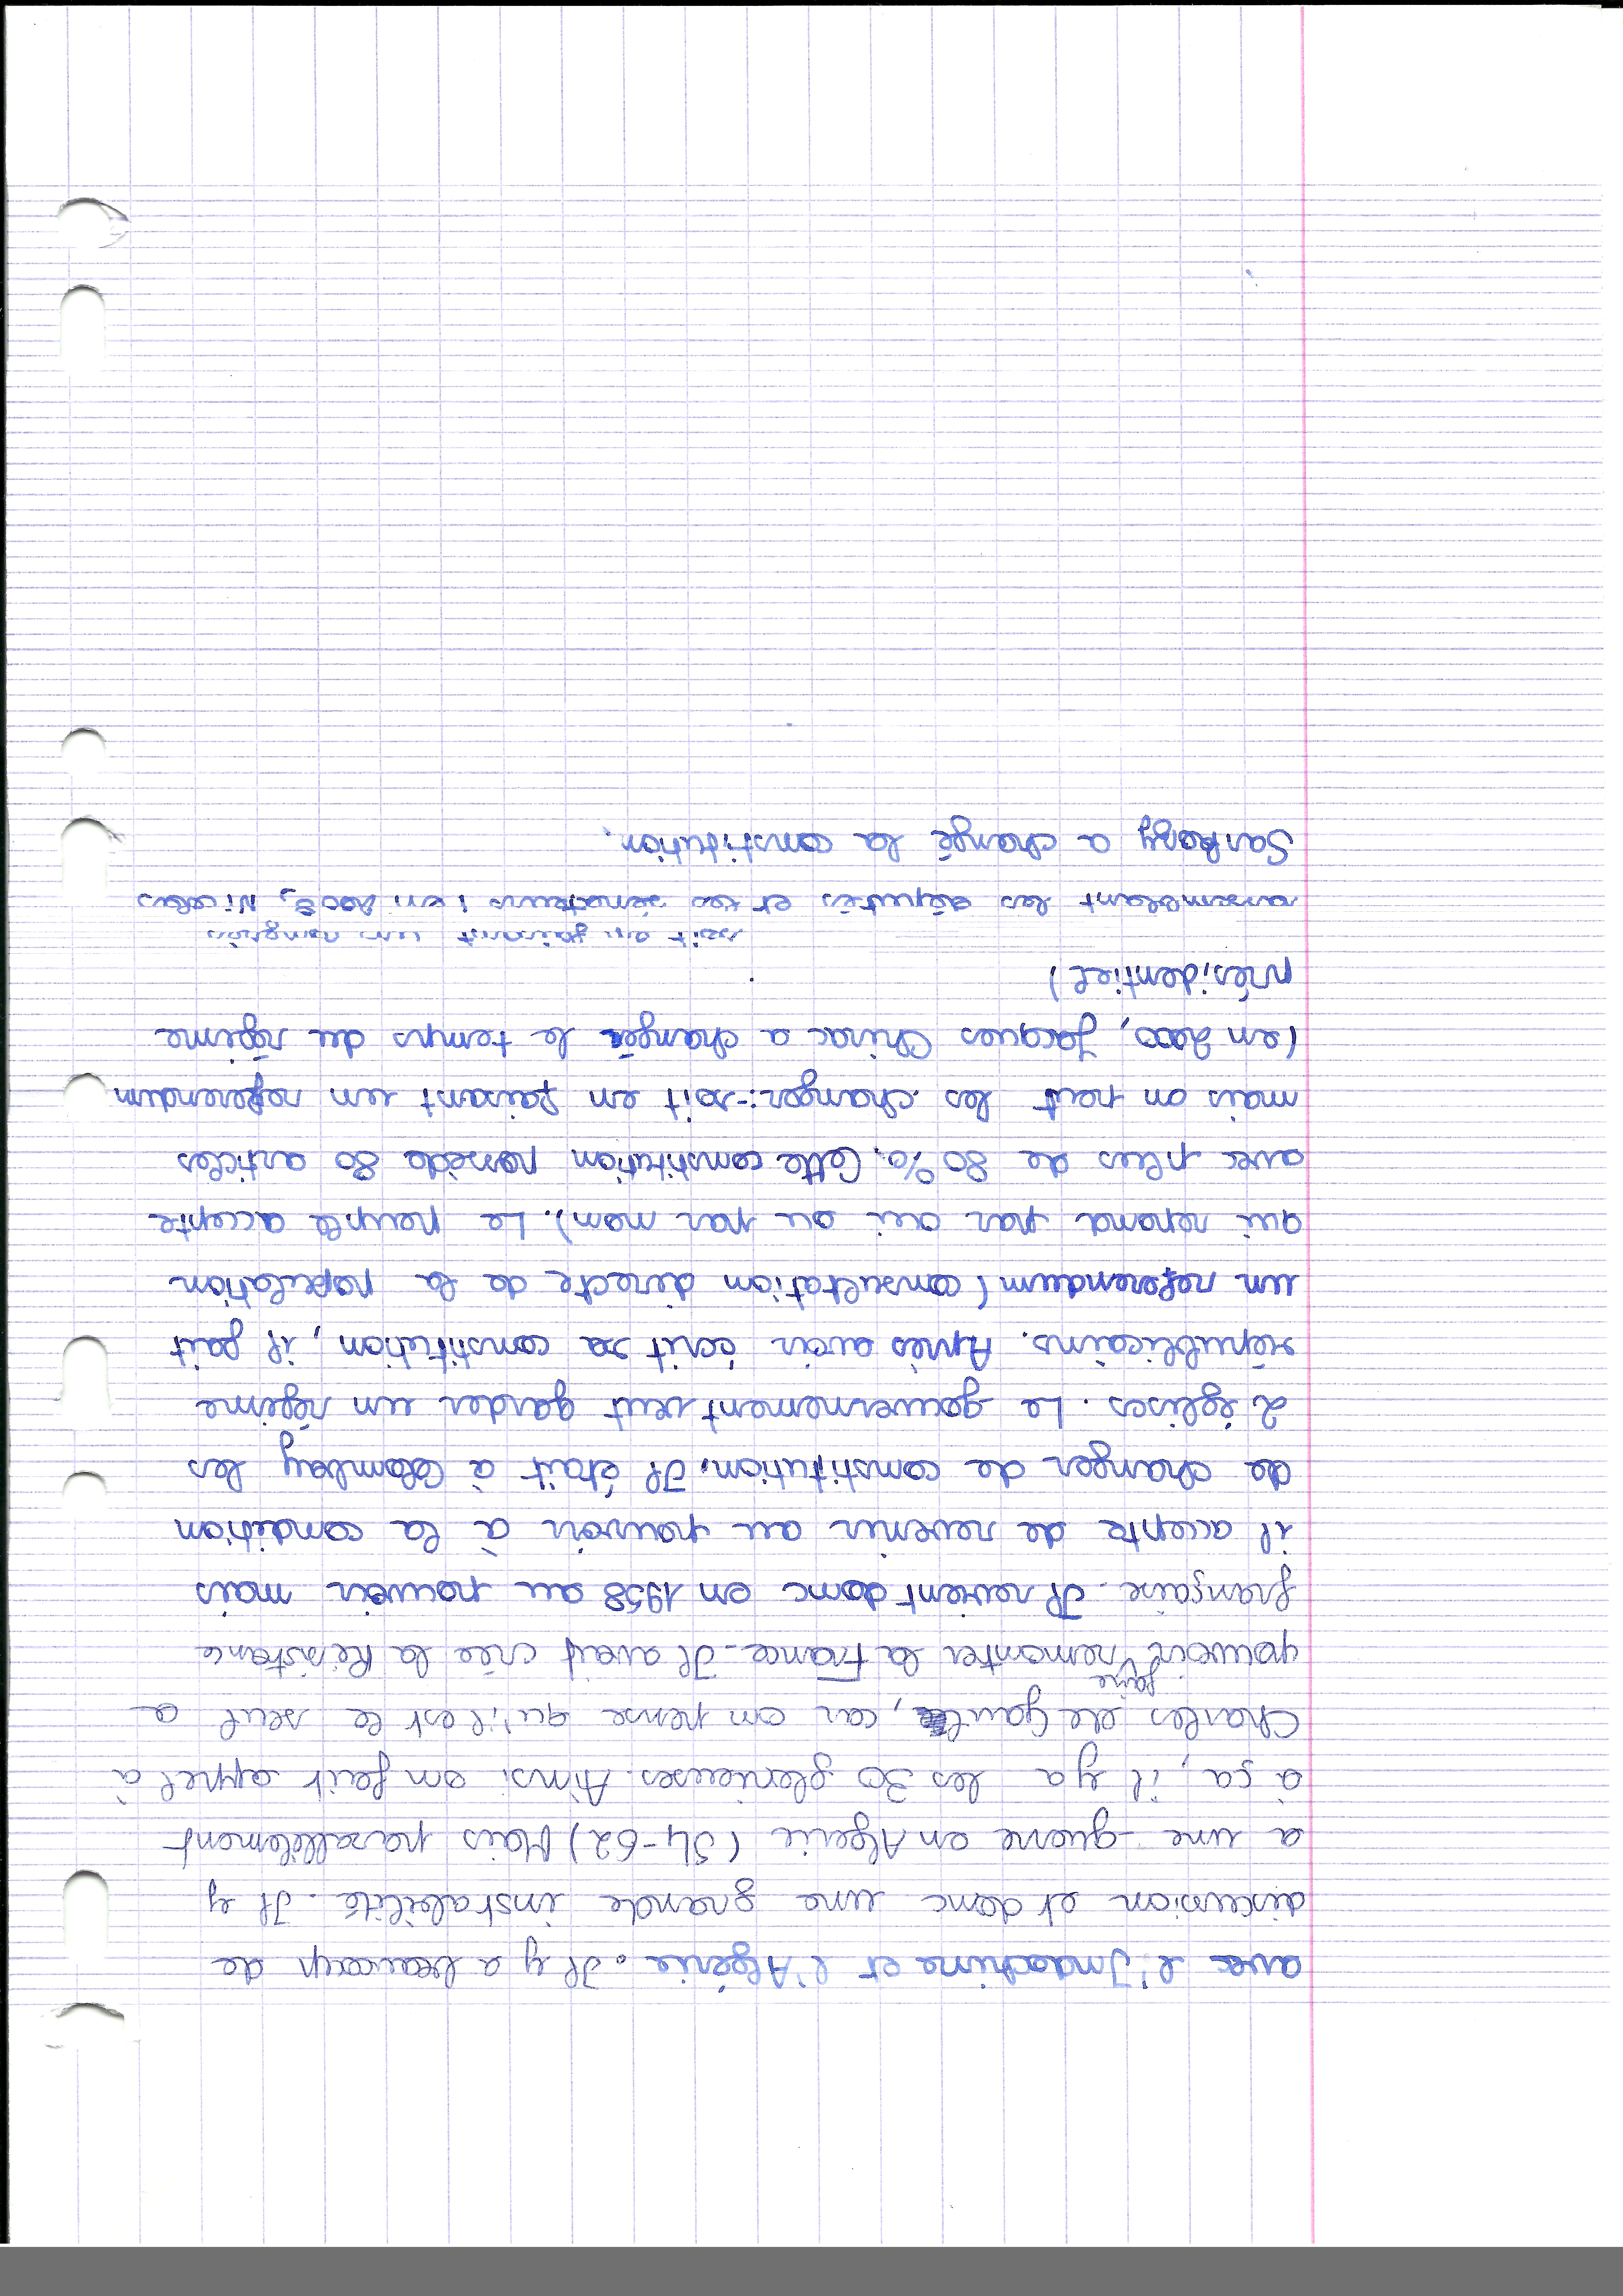 avec l'Indochine et l'Algérie. Il y a beaucoup de
discussion et donc une grande instabilité. Il y
a une guerre en Algerie (54-62) Mais parallèlement
à ça, il y a les 30 glorieuses. Ainsi on fait appel à
Charles de Gaulle, car on pense qu'il est le seul a
faire
pouvoir remonter la France. Il avait crée la Résistance
française. Il revient donc en 1958 au pouvoir mais
il accepte de revenir au pouvoir à la condition
de changer de constitution. Il était à Colombey les
2 églises. Le gouvernement veut garder un régime
républicains. Après avoir écrit sa constitution, il fait
un referendum (consultation directe de la population
qui repond par oui ou par non). Le peuple accepte
avec plus de 80%. Cette constitution possède 80 articles
mais on peut les changer:-soit en faisant un referendum
(en 2000, Jacques Chirac a changée le temps du régime
présidentiel)
soit en faisant un congrès
assemblant les députés et les sénateurs ; en 2008, Nicolas
Sarkozy a changé la constitution.